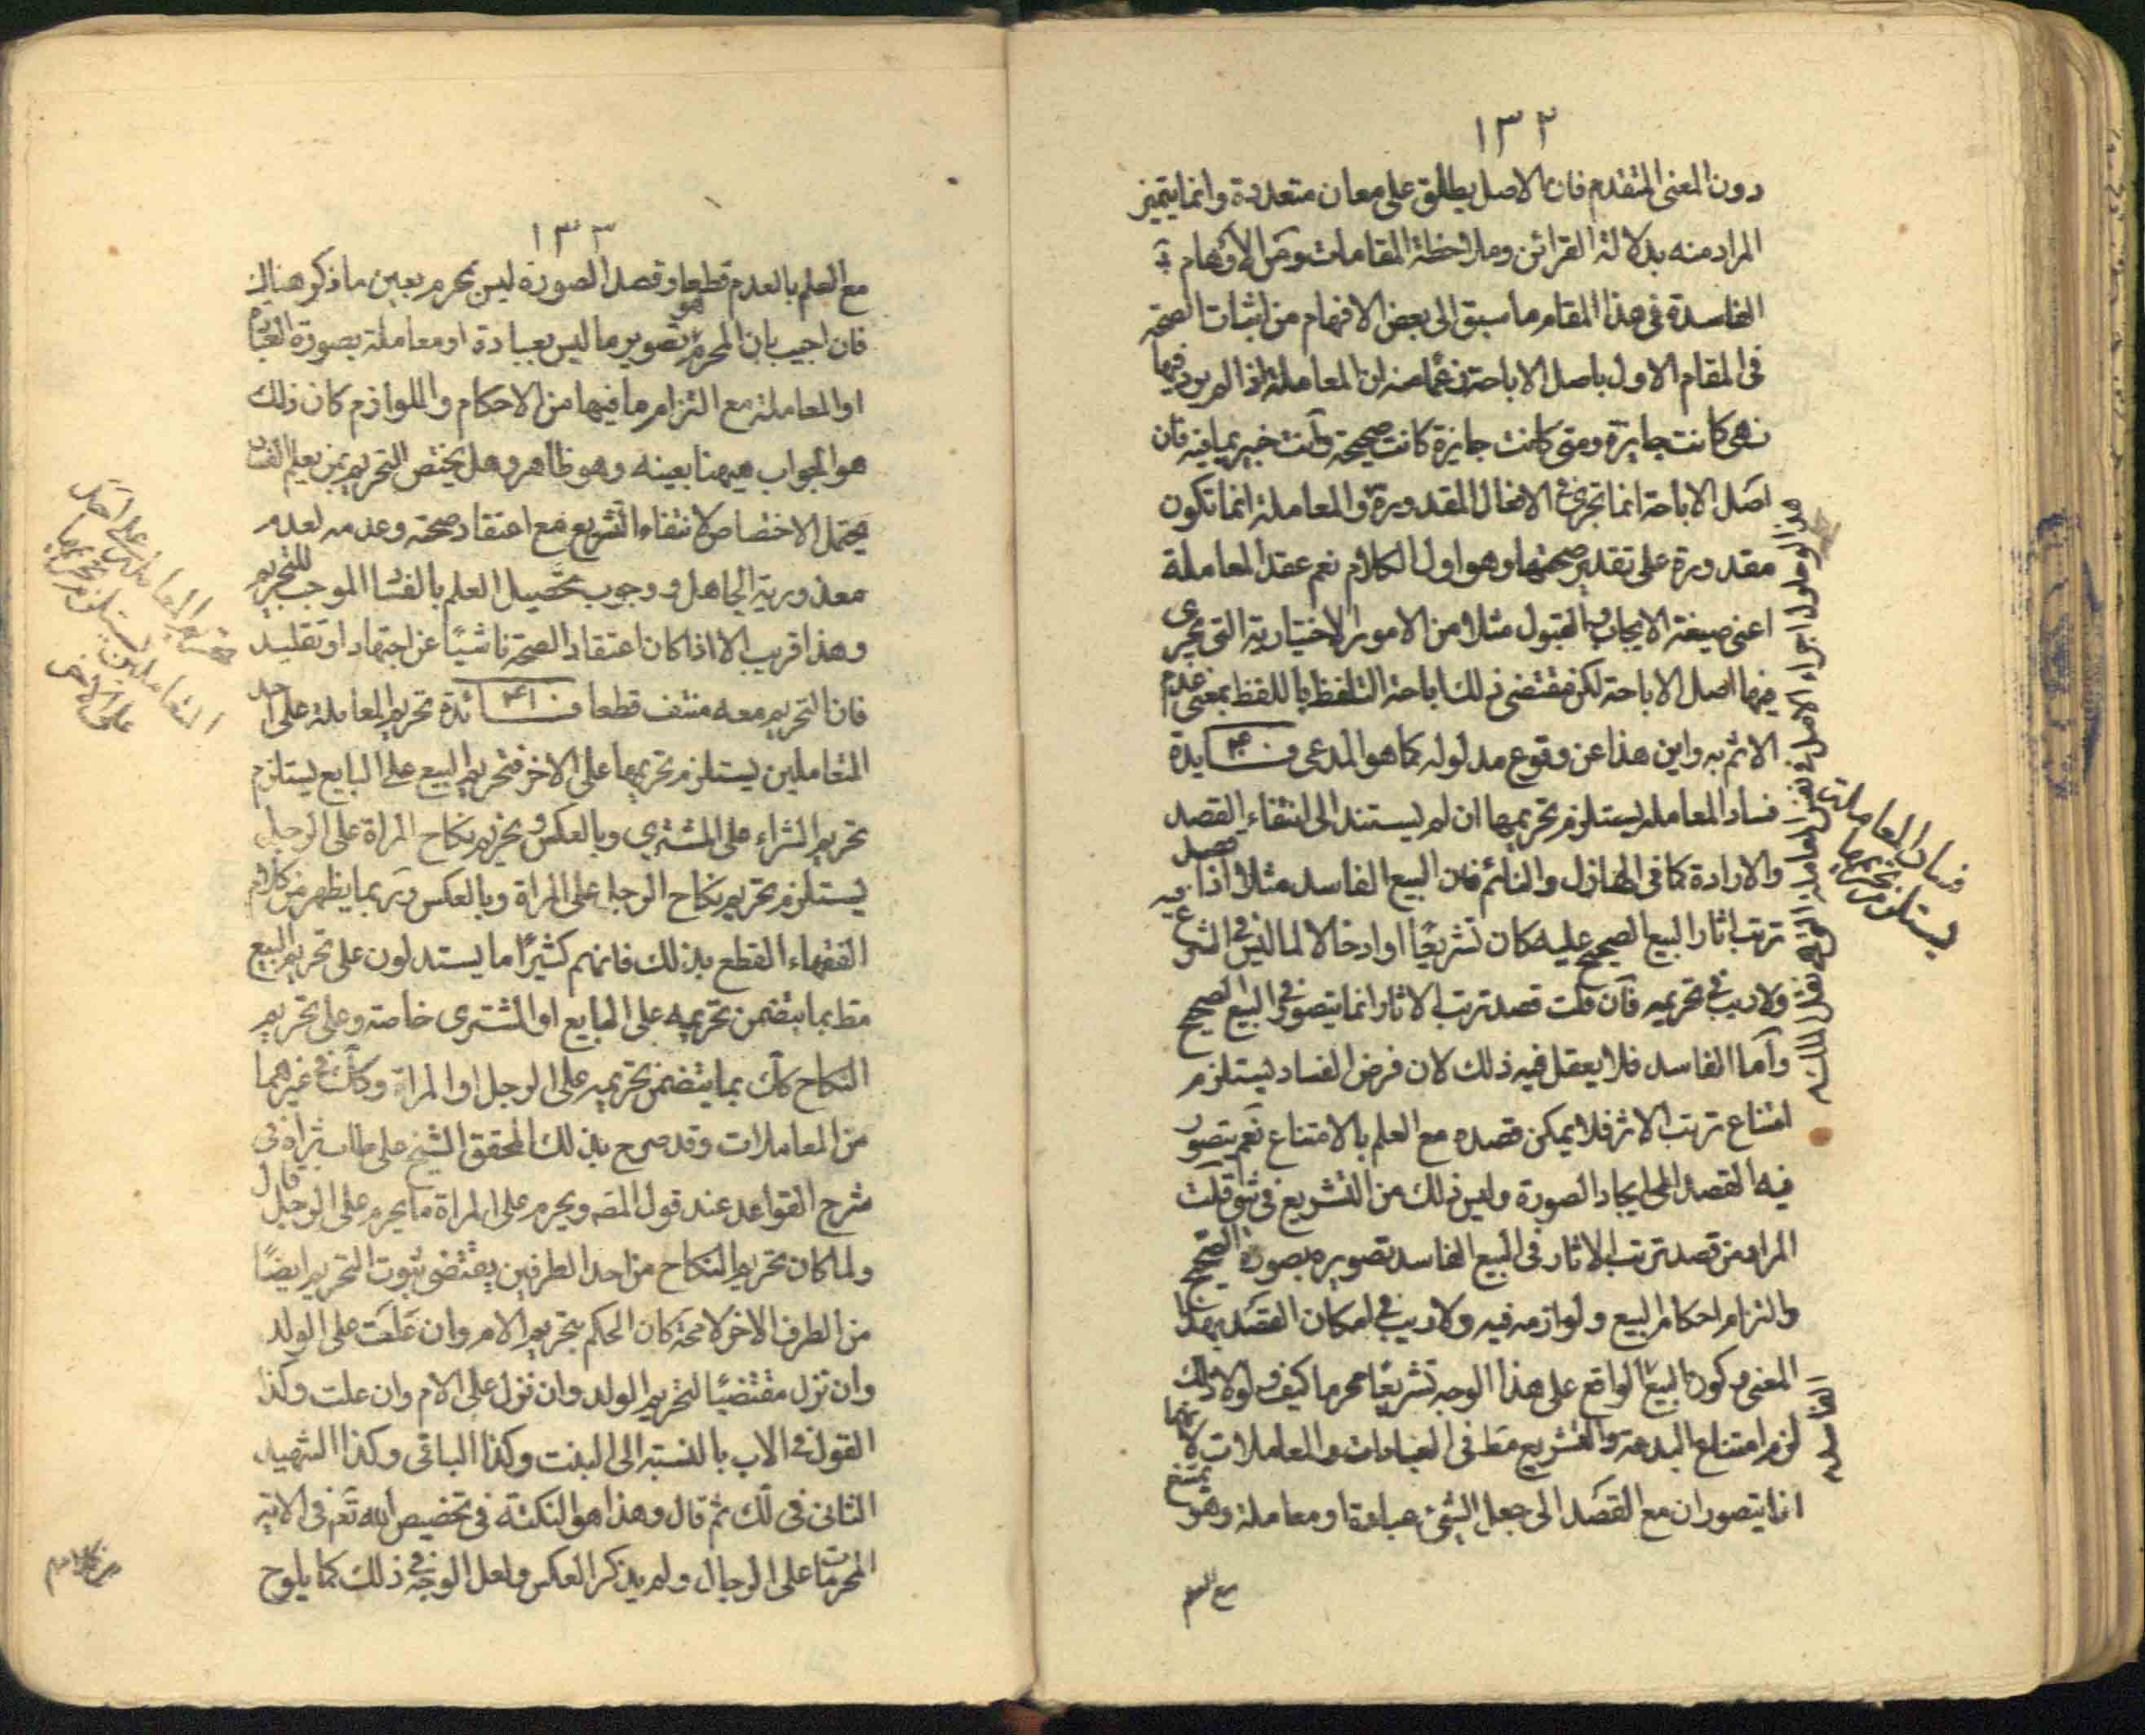 ١٣٢
دون المعنى المتقدم فان الاصل يطلق على معان متعددة وانما يتميز
المراد منه بدلالة القرائن وملاحظة المقامات ومن الاوهام
الفاسدة فى هذا المقام ما سبق الى بعض الافهام من اثبات الصحة
فى المقام الاول باصل الاباحة زعما منه ان المعاملة اذا لم يرد فيها
نهى كانت جايزة ومتى كانت جايزة كانت صحيحة وانت خبير بما فيه فان
اصل الاباحة انما تجرى فى الافعال المقدورة والمعاملة انما تكون
مقدورة على تقدير صحتها وهو اول الكلام نعم عقد المعاملة
اعنى صيغة الايجاب والقبول مثلا من الامور الاختيارية التى يجرى
فيها اصل الاباحة لكن مقتضى ذلك اباحة التلفظ باللفظ بمعنى عدم
الاثم به واين هذا عن وقوع مدلوله كما هو المدعى فايدة
فساد المعاملة يستلزم تحريمها ان لم يستند الى انتفاء القصد
والارادة كما فى الهازل والنائم فان البيع الفاسد مثلا اذا قصد فيه
ترتب اثار البيع الصحيح عليه كان تشريعا وادخالا لما ليس فى الشرع
ولا ريب فى تحريمه فان قلت قصد ترتب الاثار انما يتصور فى البيع الصحيح
واما الفاسد فلا يعقل فيه ذلك لان فرض الفساد يستلزم
امتناع ترتب الاثر فلا يمكن قصده مع العلم بالامتناع نعم يتصور
فيه القصد الى ايجاد الصورة وليس ذلك من التشريع فى شئ قلت
المراد من قصد ترتب الاثار فى البيع الفاسد تصويره بصورة الصحيح
والتزام احكام البيع ولوازمه فيه ولا ريب فى امكان القصد بهذا
المعنى وكون البيع الواقع على هذا الوجه تشريعا محرما كيف ولولا ذلك
لزم امتناع البدعة والتشريع مط فى العبادات والمعاملات لانهما
انما يتصوران مع القصد الى جعل الشئ عبادة او معاملة وهو ممتنع
مع العلم
هذا لو حاول اجراء الاصل فى نفس المعاملة التى هى نقل الملك
الفاسد
فساد المعاملة
يستلزم تحريمها
١٣٣
مع العلم بالعدم قطعا وقصد الصورة ليس بمحرم بعين ما ذكر هنالك
فان اجيب بان المحرم هو تصوير ما ليس بعبادة او معاملة بصورة العبادة
او المعاملة مع التزام ما فيها من الاحكام واللوازم كان ذلك
هو الجواب هيهنا بعينه وهو ظاهر وهل يختص التحريم بمن يعلم الفساد
يحتمل الاختصاص لانتفاء التشريع مع اعتقاد صحته وعدمه لعدم
معذورية الجاهل ووجوب تحصيل العلم بالفساد الموجب للتحريم
وهذا قريب الا اذا كان اعتقاد الصحة ناشيئا عن اجتهاد او تقليد
فان التحريم معه منتف قطعا فائدة تحريم المعاملة على احد
المتعاملين يستلزم تحريمها على الاخر فتحريم البيع على البايع يستلزم
تحريم الشراء على المشترى وبالعكس وتحريم نكاح المراة على الرجل
يستلزم تحريم نكاح الرجل على المراة وبالعكس وربما يظهر من كلام
الفقهاء القطع بذلك فانهم كثيرا ما يستدلون على تحريم البيع
مط بما يتضمن تحريمه على البايع او المشترى خاصة وعلى تحريم
النكاح كك بما يتضمن تحريمه على الرجل او المراة وكك فى غيرهما
من المعاملات وقد صرح بذلك المحقق الشيخ على طاب ثراه فى
شرح القواعد عند قول المصه ويحرم على المراة ما يحرم على الرجل قال
ولما كان تحريم النكاح من احد الطرفين يقتضى ثبوت التحريم ايضا
من الطرف الاخر لا محة كان الحكم بتحريم الام وان علت على الولد
وان نزل مقتضيا لتحريم الولد وان نزل على الام وان علت وكذا
القول فى الاب بالنسبة الى البنت وكذا الباقى وكذا الشهيد
الثانى فى لك ثم قال وهذا هو النكتة فى تخصيص الله تعم فى الاية
المحرمات على الرجال ولم يذكر العكس ولعل الوجه فى ذلك كما يلوح
تحريم المعاملة على احد
المتعاملين يستلزم تحريمها
على الاخر
من كلام